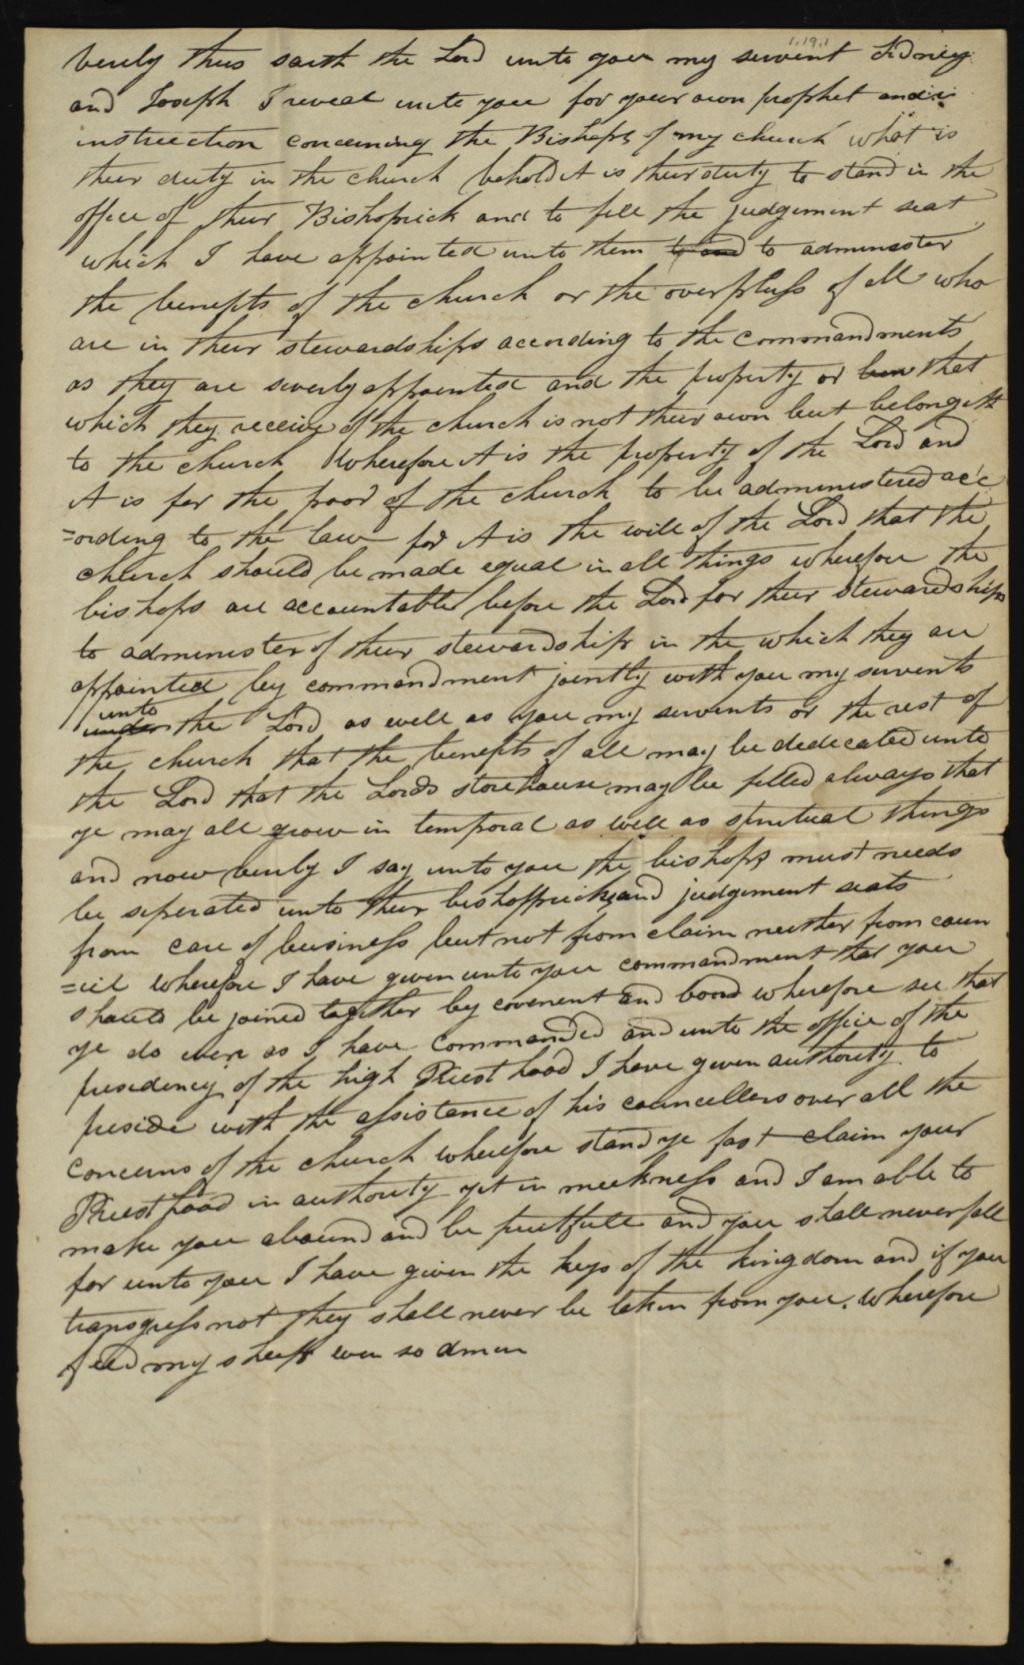 1.19.1
Verily thus saith the Lord unto you my servent Sidney
and Joseph I reveal unto you for your own prophet and
instruction concerning the Bishops of my church what is
their duty in the church behold it is their duty to stand in the
office of their Bishoprick and to fill the judgement seat
which I have appointed unto them to and to administer
the benefits of the church or the overpluss of all who
are in their stewardships according to the commandments
as they are severly appointed and the property or that
which they receive of the church is not their own but belongeth
to the church Wherefore it is the property of the Lord and
it is for the poor of the church to be administered acc
=ording to the law for it is the will of the Lord that the
church should be made equal in all things wherefore the
bishops are accountable before the Lord for their stewardships
to administer of their stewardship in the which they are
appointed by commandment jointly with you my servents
unto
under the Lord as well as you my servents or the rest of
the church that the benefits of all may be dedicated unto
the Lord that the Lords storehouse may be filled always that
ye may all grow in temporal as well as spiritual things
and now verily I say unto you the bishops must needs
be seperated unto their bishoppricks and judgement seats
from care of business but not from claim neither from coun
=cil wherefore I have given unto you commandment that you
should be joined together by covenent and bond wherefore see that
ye do even as I have commanded and unto the office of the
presidency of the high Priest hood I have given authority to
preside with the assistance of his councellers over all the
concerns of the church wherefore stand ye fast claim your
Priest hood in authority yet in meekness and I am able to
make you abound and be fruitfull and you shall never fall
for unto you I have given the keys of the kingdom and if you
transgress not they shall never be taken from you. Wherefore
feed my sheep even so amen